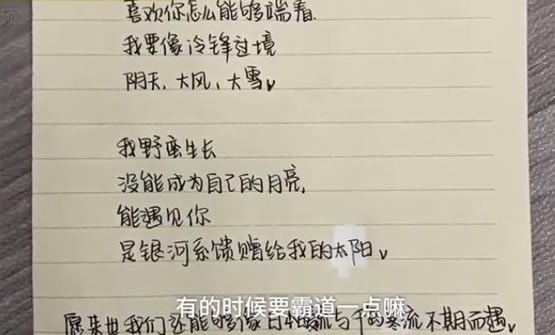 喜欢你怎么能够喘着
我要像冷锋过境
阴天,大风,大雪。
我野蛮生长
没能成为自己的月亮,
能遇见你
是银河系馈赠给我的太阳。
有的时候要霸道一点嘛
愿来世我们还能够像日本暖流与千岛寒流不期而遇。